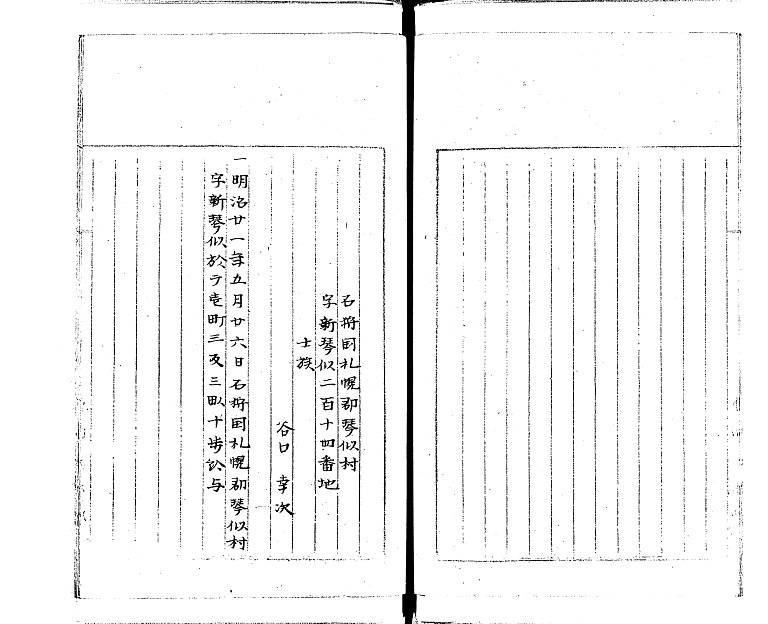 石狩国札幌郡琴似村
字新琴似二百十四番地
士族
谷口 幸次
一明治廿一年五月廿六日石狩国札幌郡琴似村
字新琴似於テ壱町三反三畝十歩給与